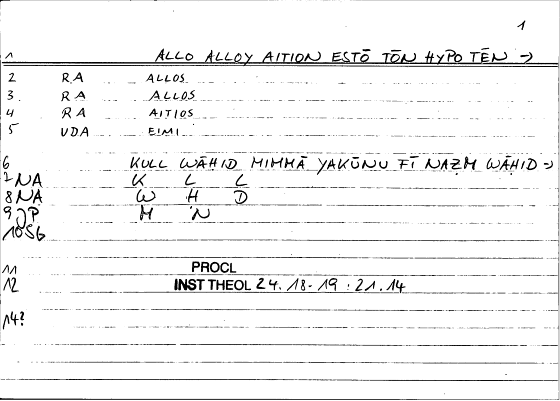 1
1 ALLO ALLOY AITION ESTŌ TŌN HYPO TĒN →
2 RA ALLOS
3. RA ALLOS
4 RA AITIOS
5 VDA EIMI
6 KULL WĀḤID MIMMĀ YAKŪNU FĪ NAẒM WĀḤID →
7 NA K L L
8 NA W H D
9 JP M N
10 SG
11 PROCL
12 INST THEOL 24.18-19 : 21.14
14?